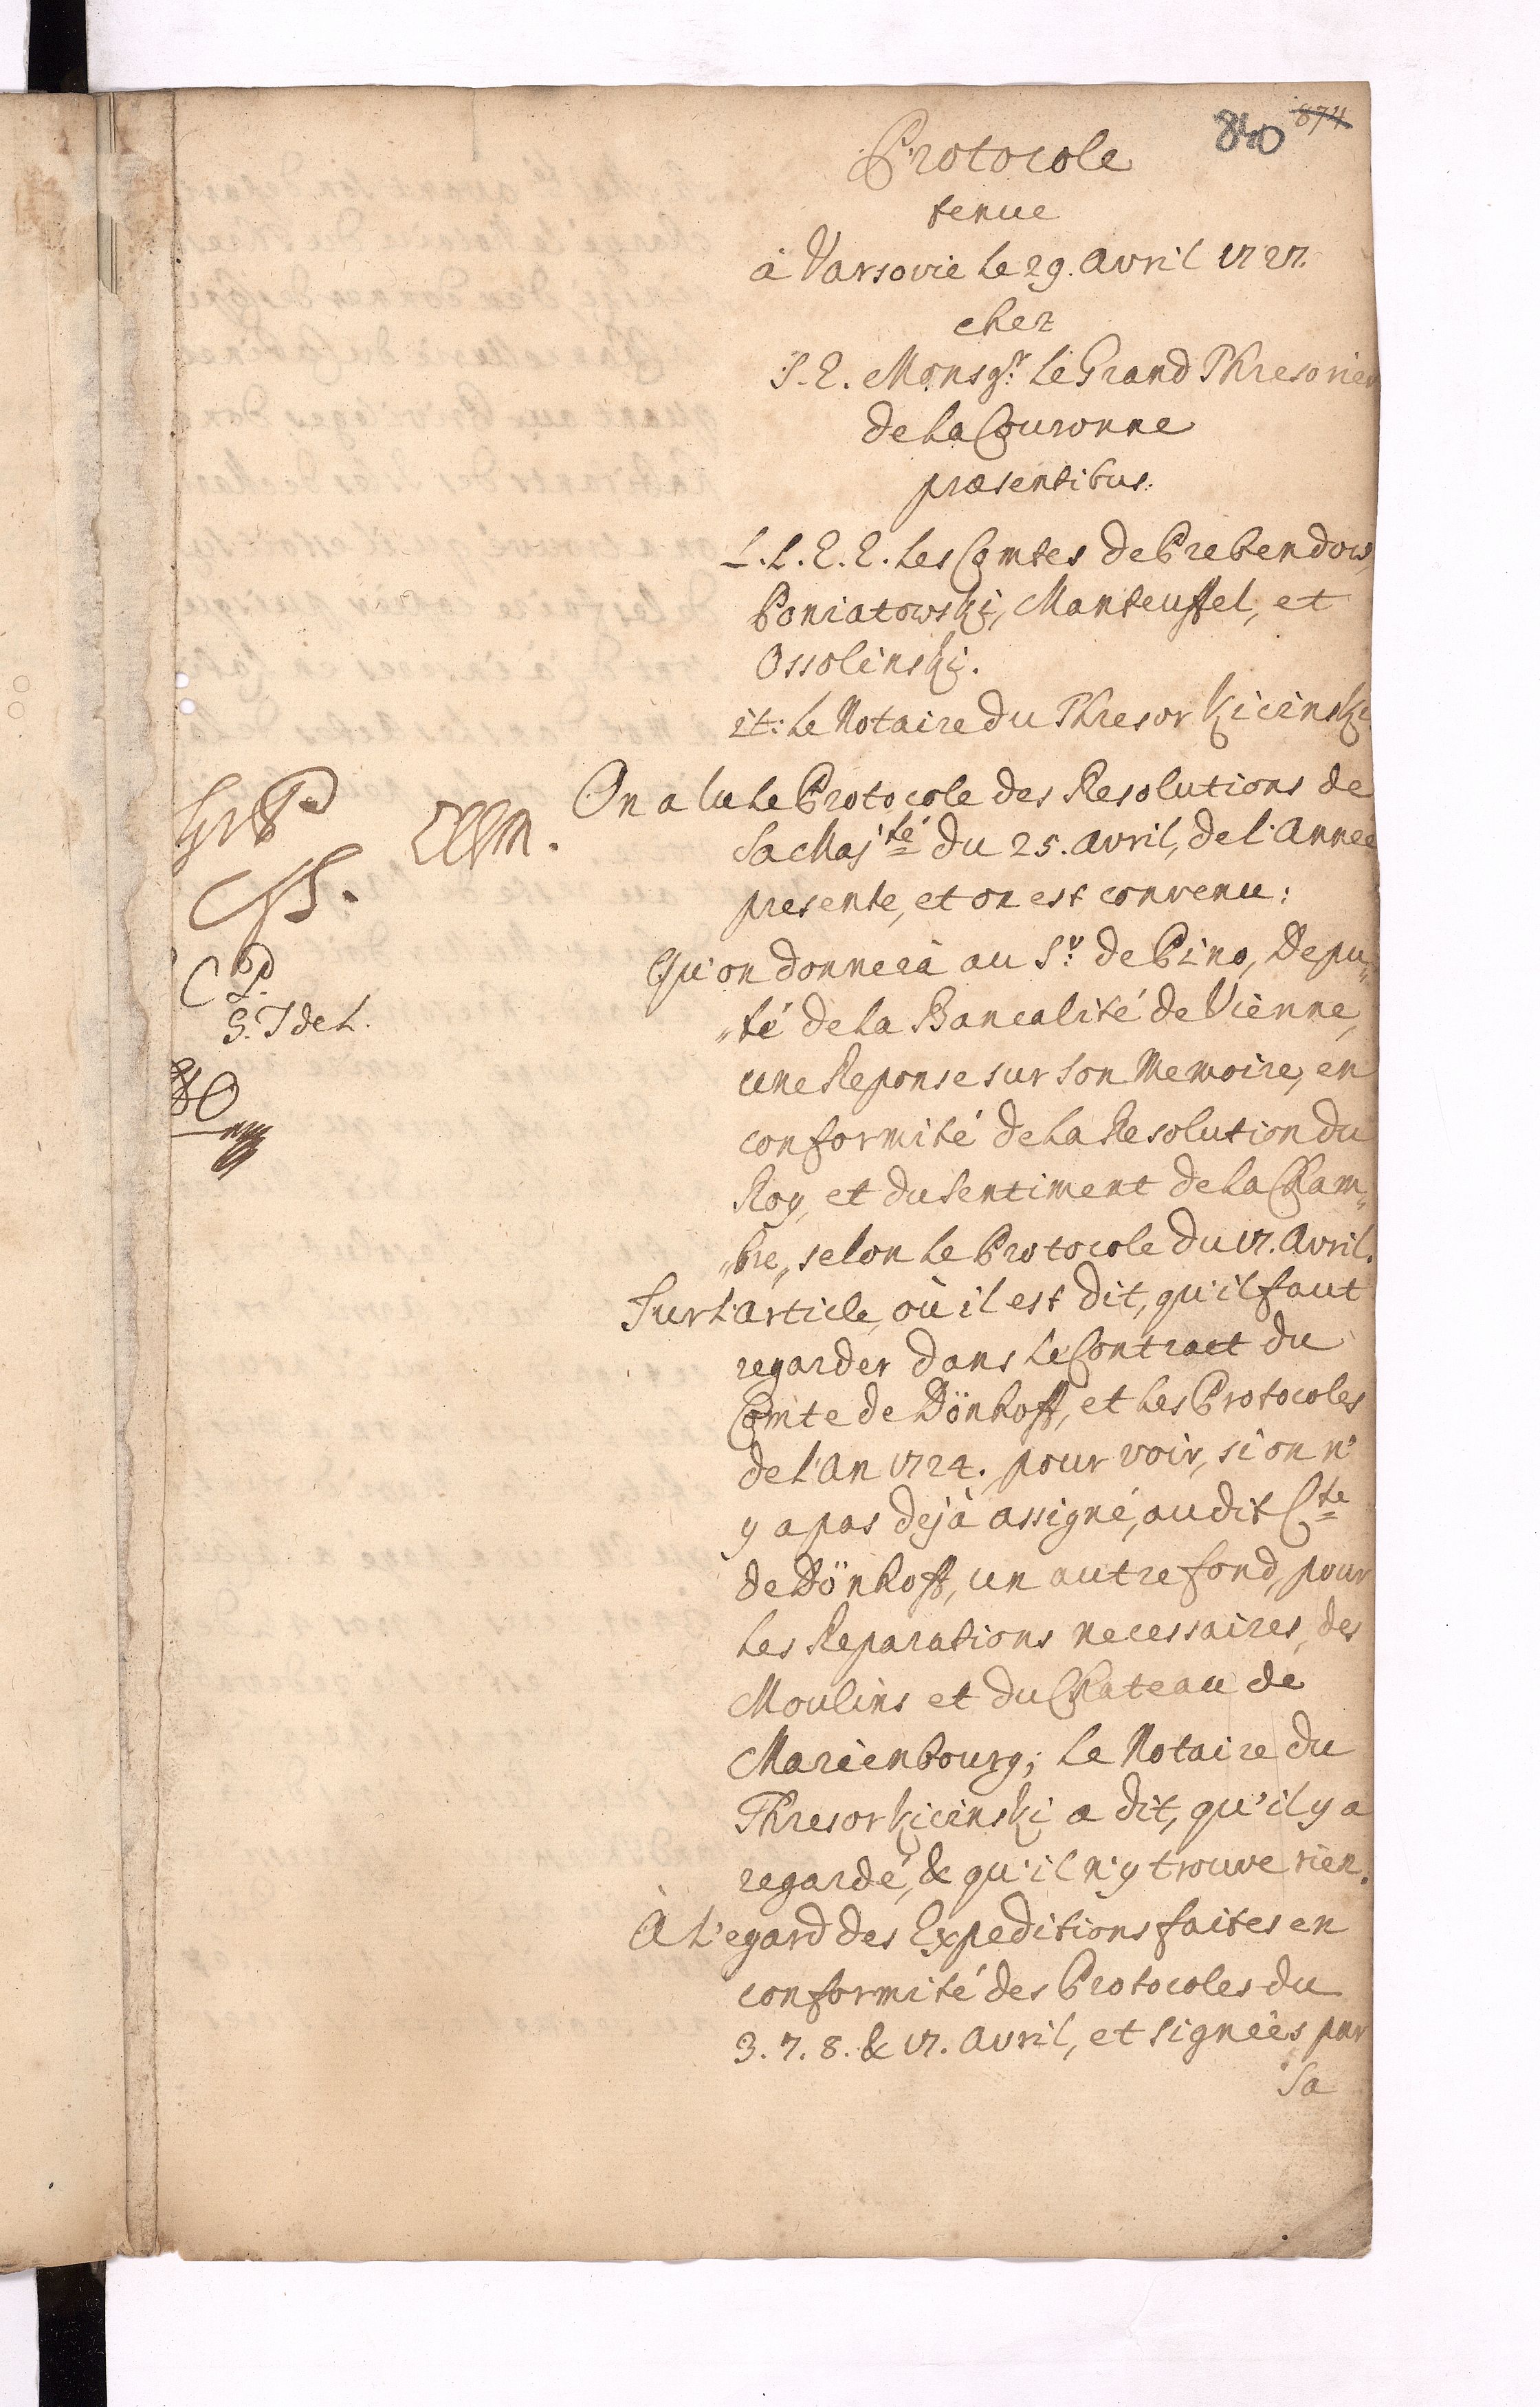 840 874
Protocole
tenue
à Varsovie le 29. Avril 1727.
chez
S. E. Monsgr. le Grand Thresorier
de la Couronne
præsentibus.
L. L. E. E. les Comtes de Prebendow,
Poniatowski, Manteuffel, et
Ossolinski.
it: le Notaire du Thresor Kicinski
On a lu le Protocole des Resolutions de
Sa Maj.té du 25. Avril, de l'Année
presente, et on est convenu:
Qu'on donnera au Sr. de Pino, Depu„
„té de la Bancalité de Vienne,
une Reponse sur son Memoire, en
conformité de la Resolution du
Roy, et du sentiment de la Cham„
„bre, selon le Protocole du 17. Avril.
Sur l'article, où il est dit, qu'il faut
regarder dans le Contract du
Comte de Dönhoff, et les Protocoles
de l'An 1724. pour voir, si on n'
y a pas dejà assigné, audit Cte
de Dönhoff, un autre fond, pour
les Reparations necessaires, des
Moulins et du Chateau de
Marienbourg; le Notaire du
Thresor Kicinski a dit, qu'il y a
regardé, & qu'il n'y trouve rien.
À l'egard des Expeditions faites en
conformité des Protocoles du
3. 7. 8. & 17. Avril, et signées par
Sa
CP
S. T de L.